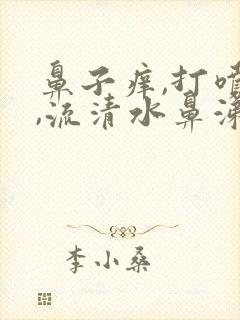 鼻子痒,打喷
,流清水鼻涕
李小桑